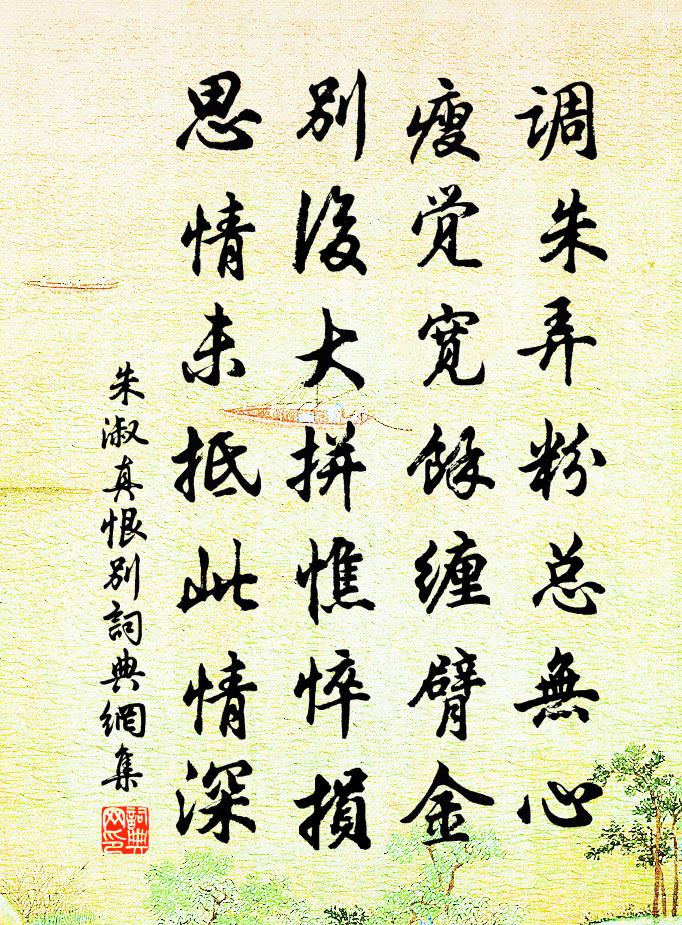 调朱弄粉总無心
瘦觉宽餘缠臂金
别後大拼憔悴損
思情未抵此情深
朱淑真恨别詞典網集
詞典网印